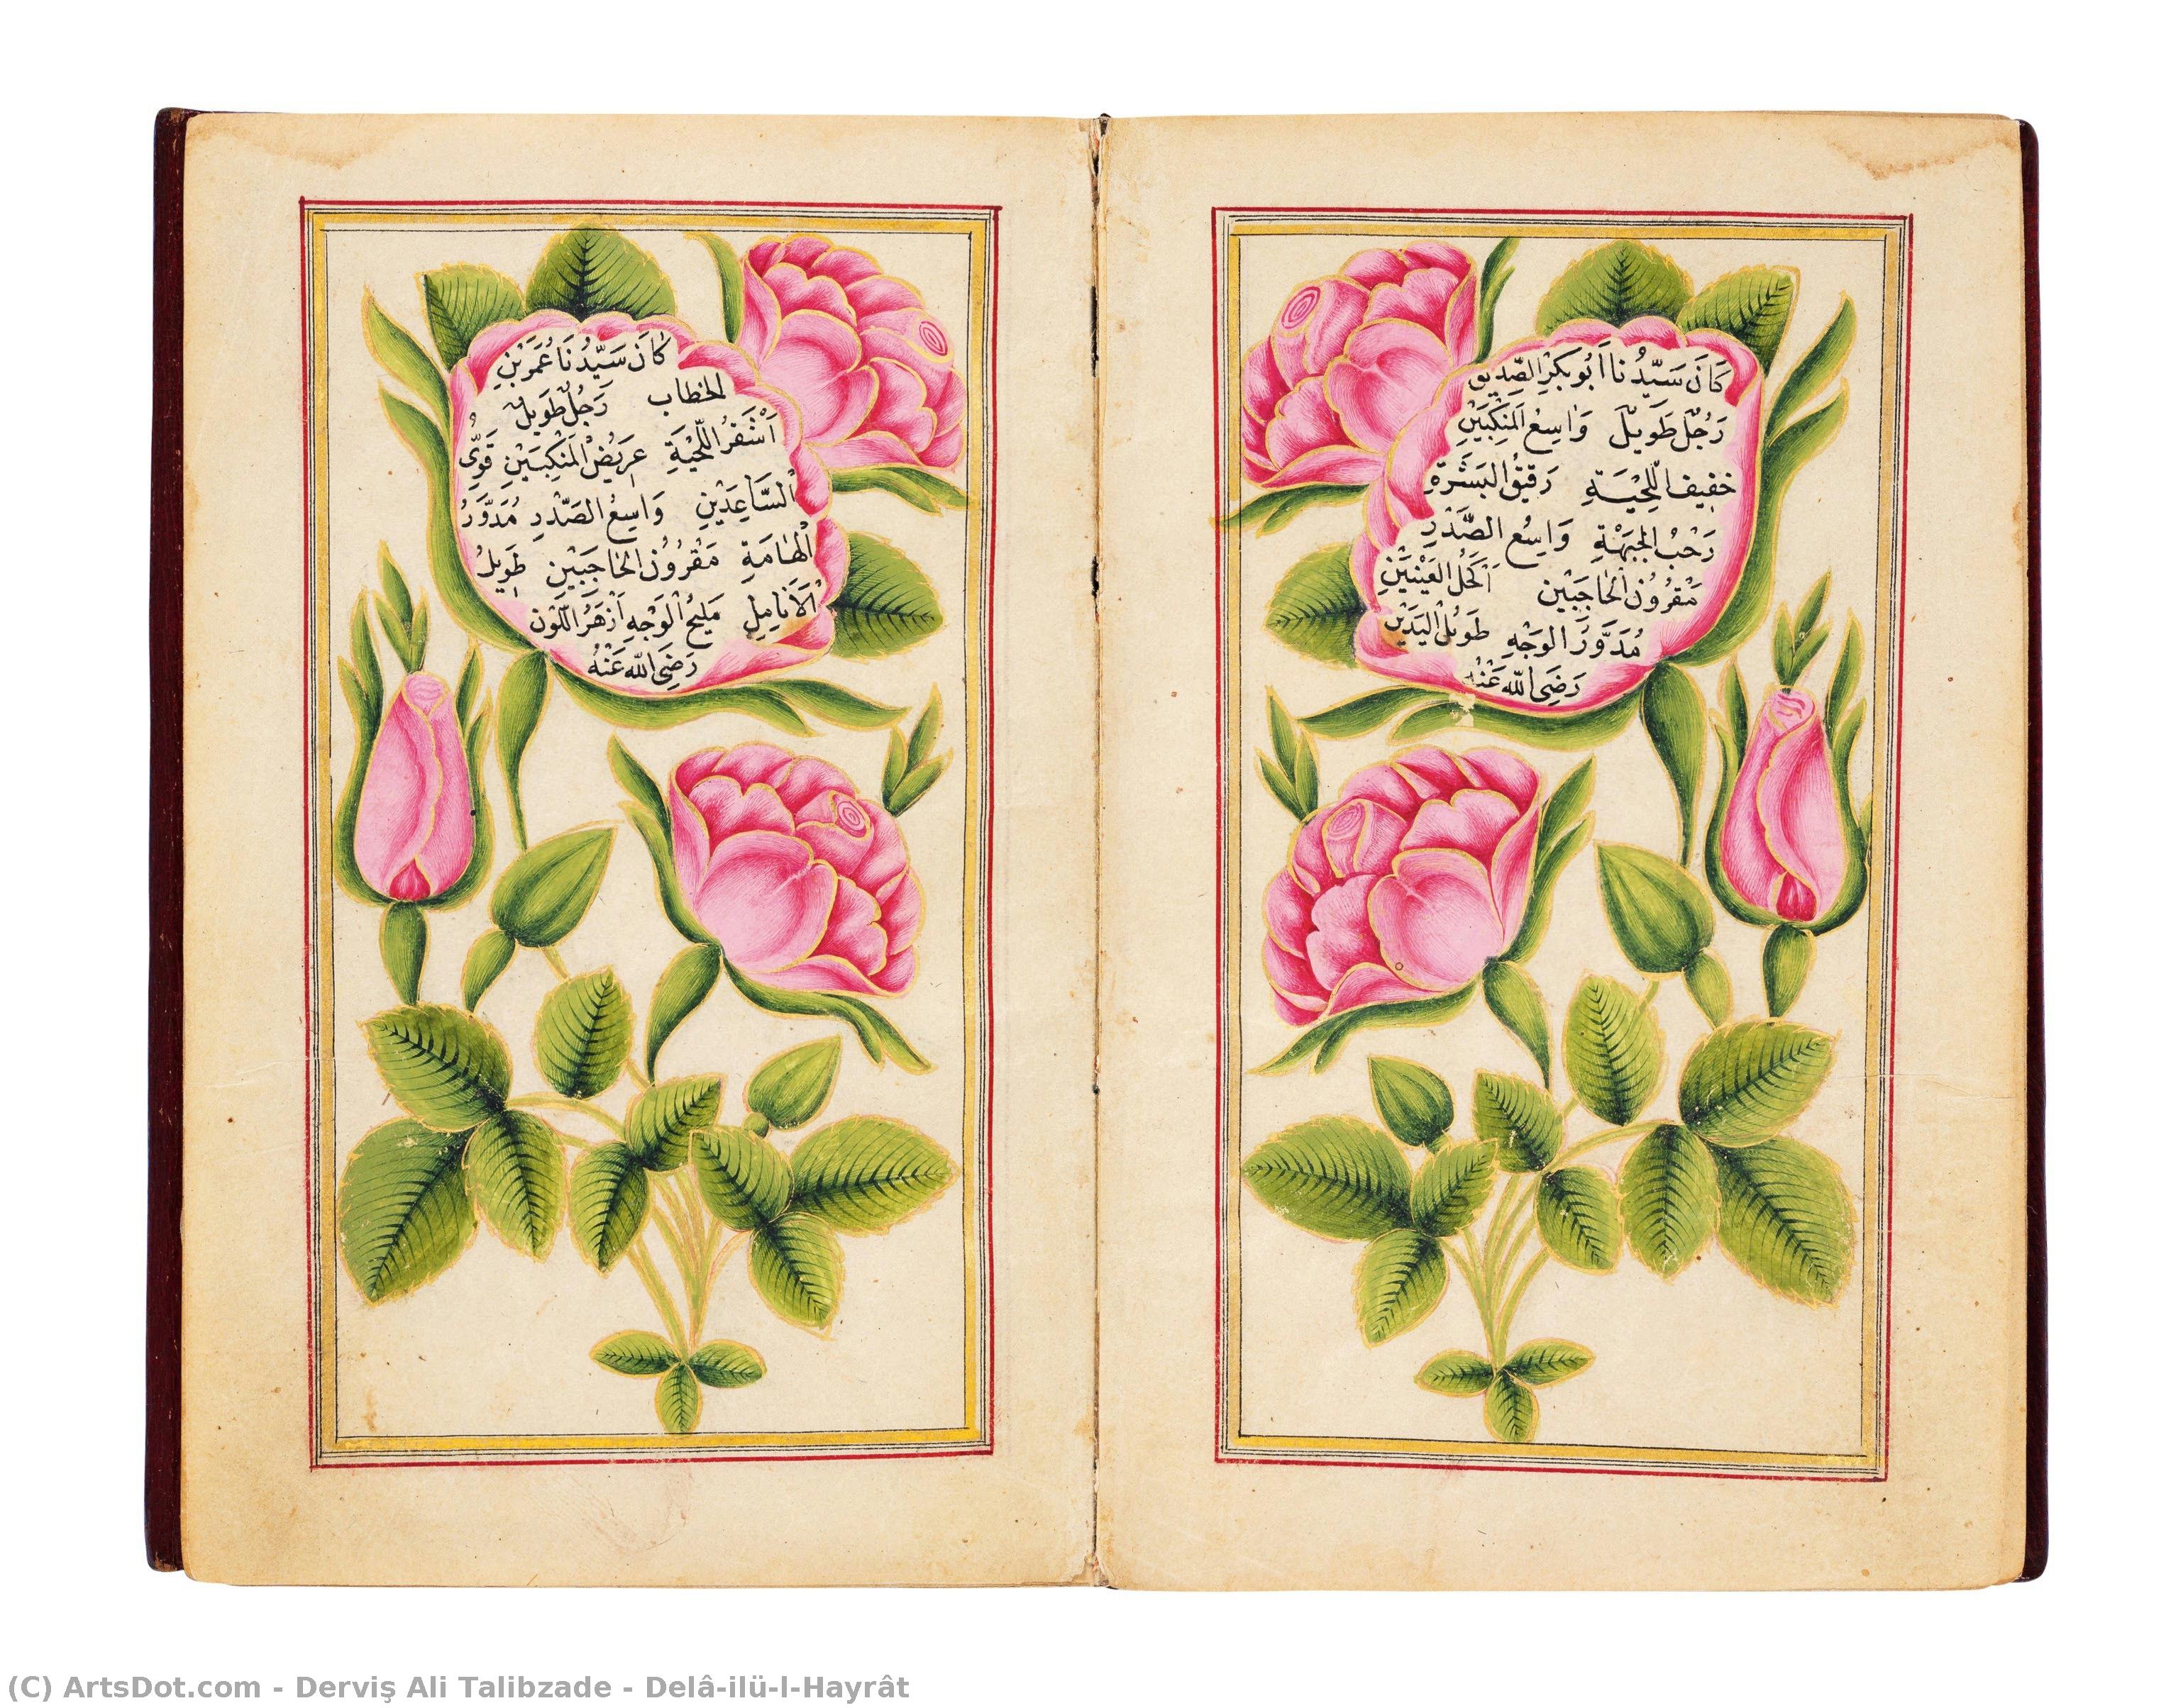 كَانَ سَيِّدُنَا اَبُو بَكْرِ الصِّدِيق
رَجُلٌ طَوِيلٌ وَاسِعُ الْمَنْكِبَيْنِ
خَفِيفُ اللِّحْيَةِ رَقِيقُ الْبَشَرَةِ
رَحْبُ الْجَبْهَةِ وَاسِعُ الصَّدْرِ
مَقْرُوُنُ الْحَاجِبَيْنِ اَكْحَلُ الْعَيْنَيْنِ
مُدَوَّرُ الْوَجْهِ طَوِيلُ الْيَدَيْنِ
رَضِيَ اللّٰه عَنْهُ
كَانَ سَيِّدُنَا عُمَرَ بْنِ
الخطاب رَجُلٌ طَوِيلٌ
اَشْقَرُ اللِّحْيَةِ عَرِيضُ الْمَنْكِبَيْنِ قَوِىُّ
السَّاعِدَيْنِ وَاسِعُ الصَّدْرِ مُدَوَّرُ
الْهَامَةِ مَقْرُوُنُ الْحَاجِبَيْنِ طَوِيلُ
الْاَنَامِلِ مَلِيحُ الْوَجْهِ اَزْهَرُ اللَّوْنِ
رَضِيَ اللّٰه عَنْهُ
(C) ArtsDot.com - Derviş Ali Talibzade - Delâ-ilü-l-Hayrât